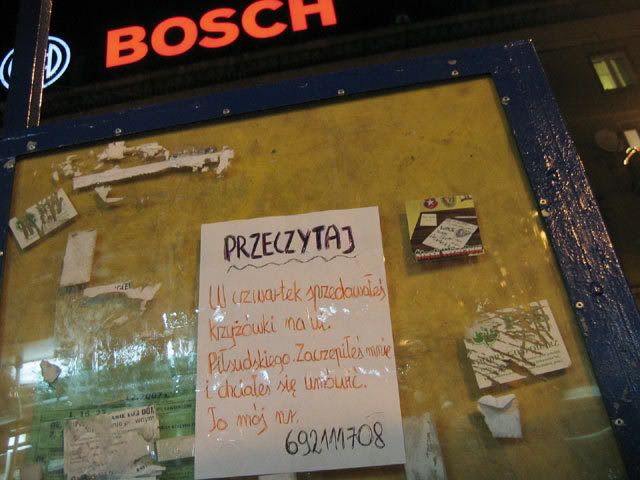 BOSCH
PRZECZYTAJ
W czwartek sprzedawałeś
krzyżówki na ul.
Piłsudskiego. Zaczepiłeś mnie
i chciałeś się umówić.
To mój nr.
692111708